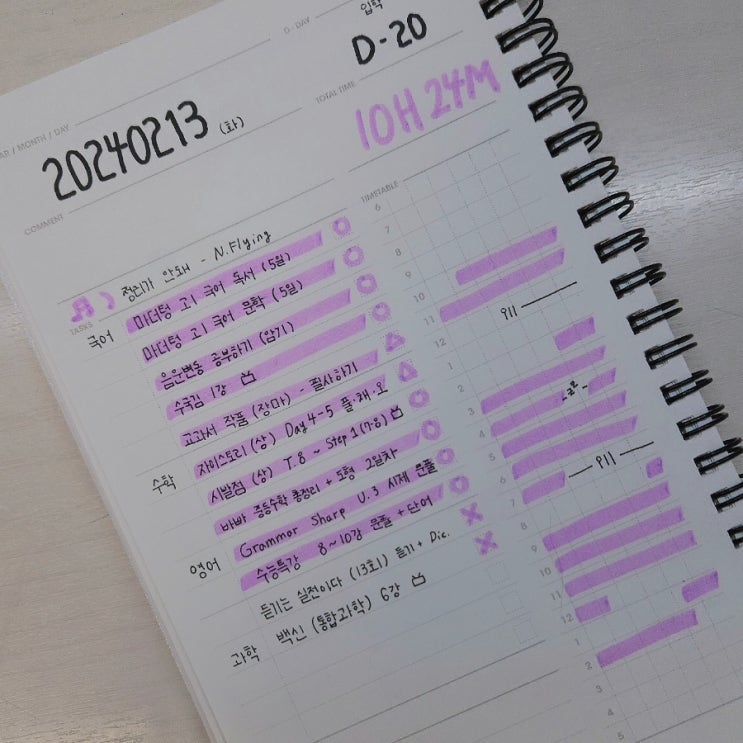 D-DAY
입학
D-20
YEAR / MONTH / DAY
20240213 (화)
TOTAL TIME
10H 24M
COMMENT
정리가 안돼 - N.Flying
TASKS
국어 마더텅 고1 국어 독서 (5일)
마더텅 고1 국어 문학 (5일)
음운변동 공부하기 (암기)
수국김 1강
교과서 작품 (장마) - 필사하기
수학 자이스토리 (상) Day 4-5 플·채·오
시발점 (상) T.8 ~ Step 1 (7·8)
바빠 중등수학 총정리 + 도형 2일차
영어 Grammar Sharp U.3 시제 문풀
수능특강 8~10강 문풀 + 단어
듣기는 실전이다 (13회) 듣기 + Dic.
과학 백신 (통합과학) 6강
TIMETABLE
6
7
8
9
10
11
밥
12
1
2
3
4
5
6
밥
7
8
9
10
11
12
1
2
3
4
5